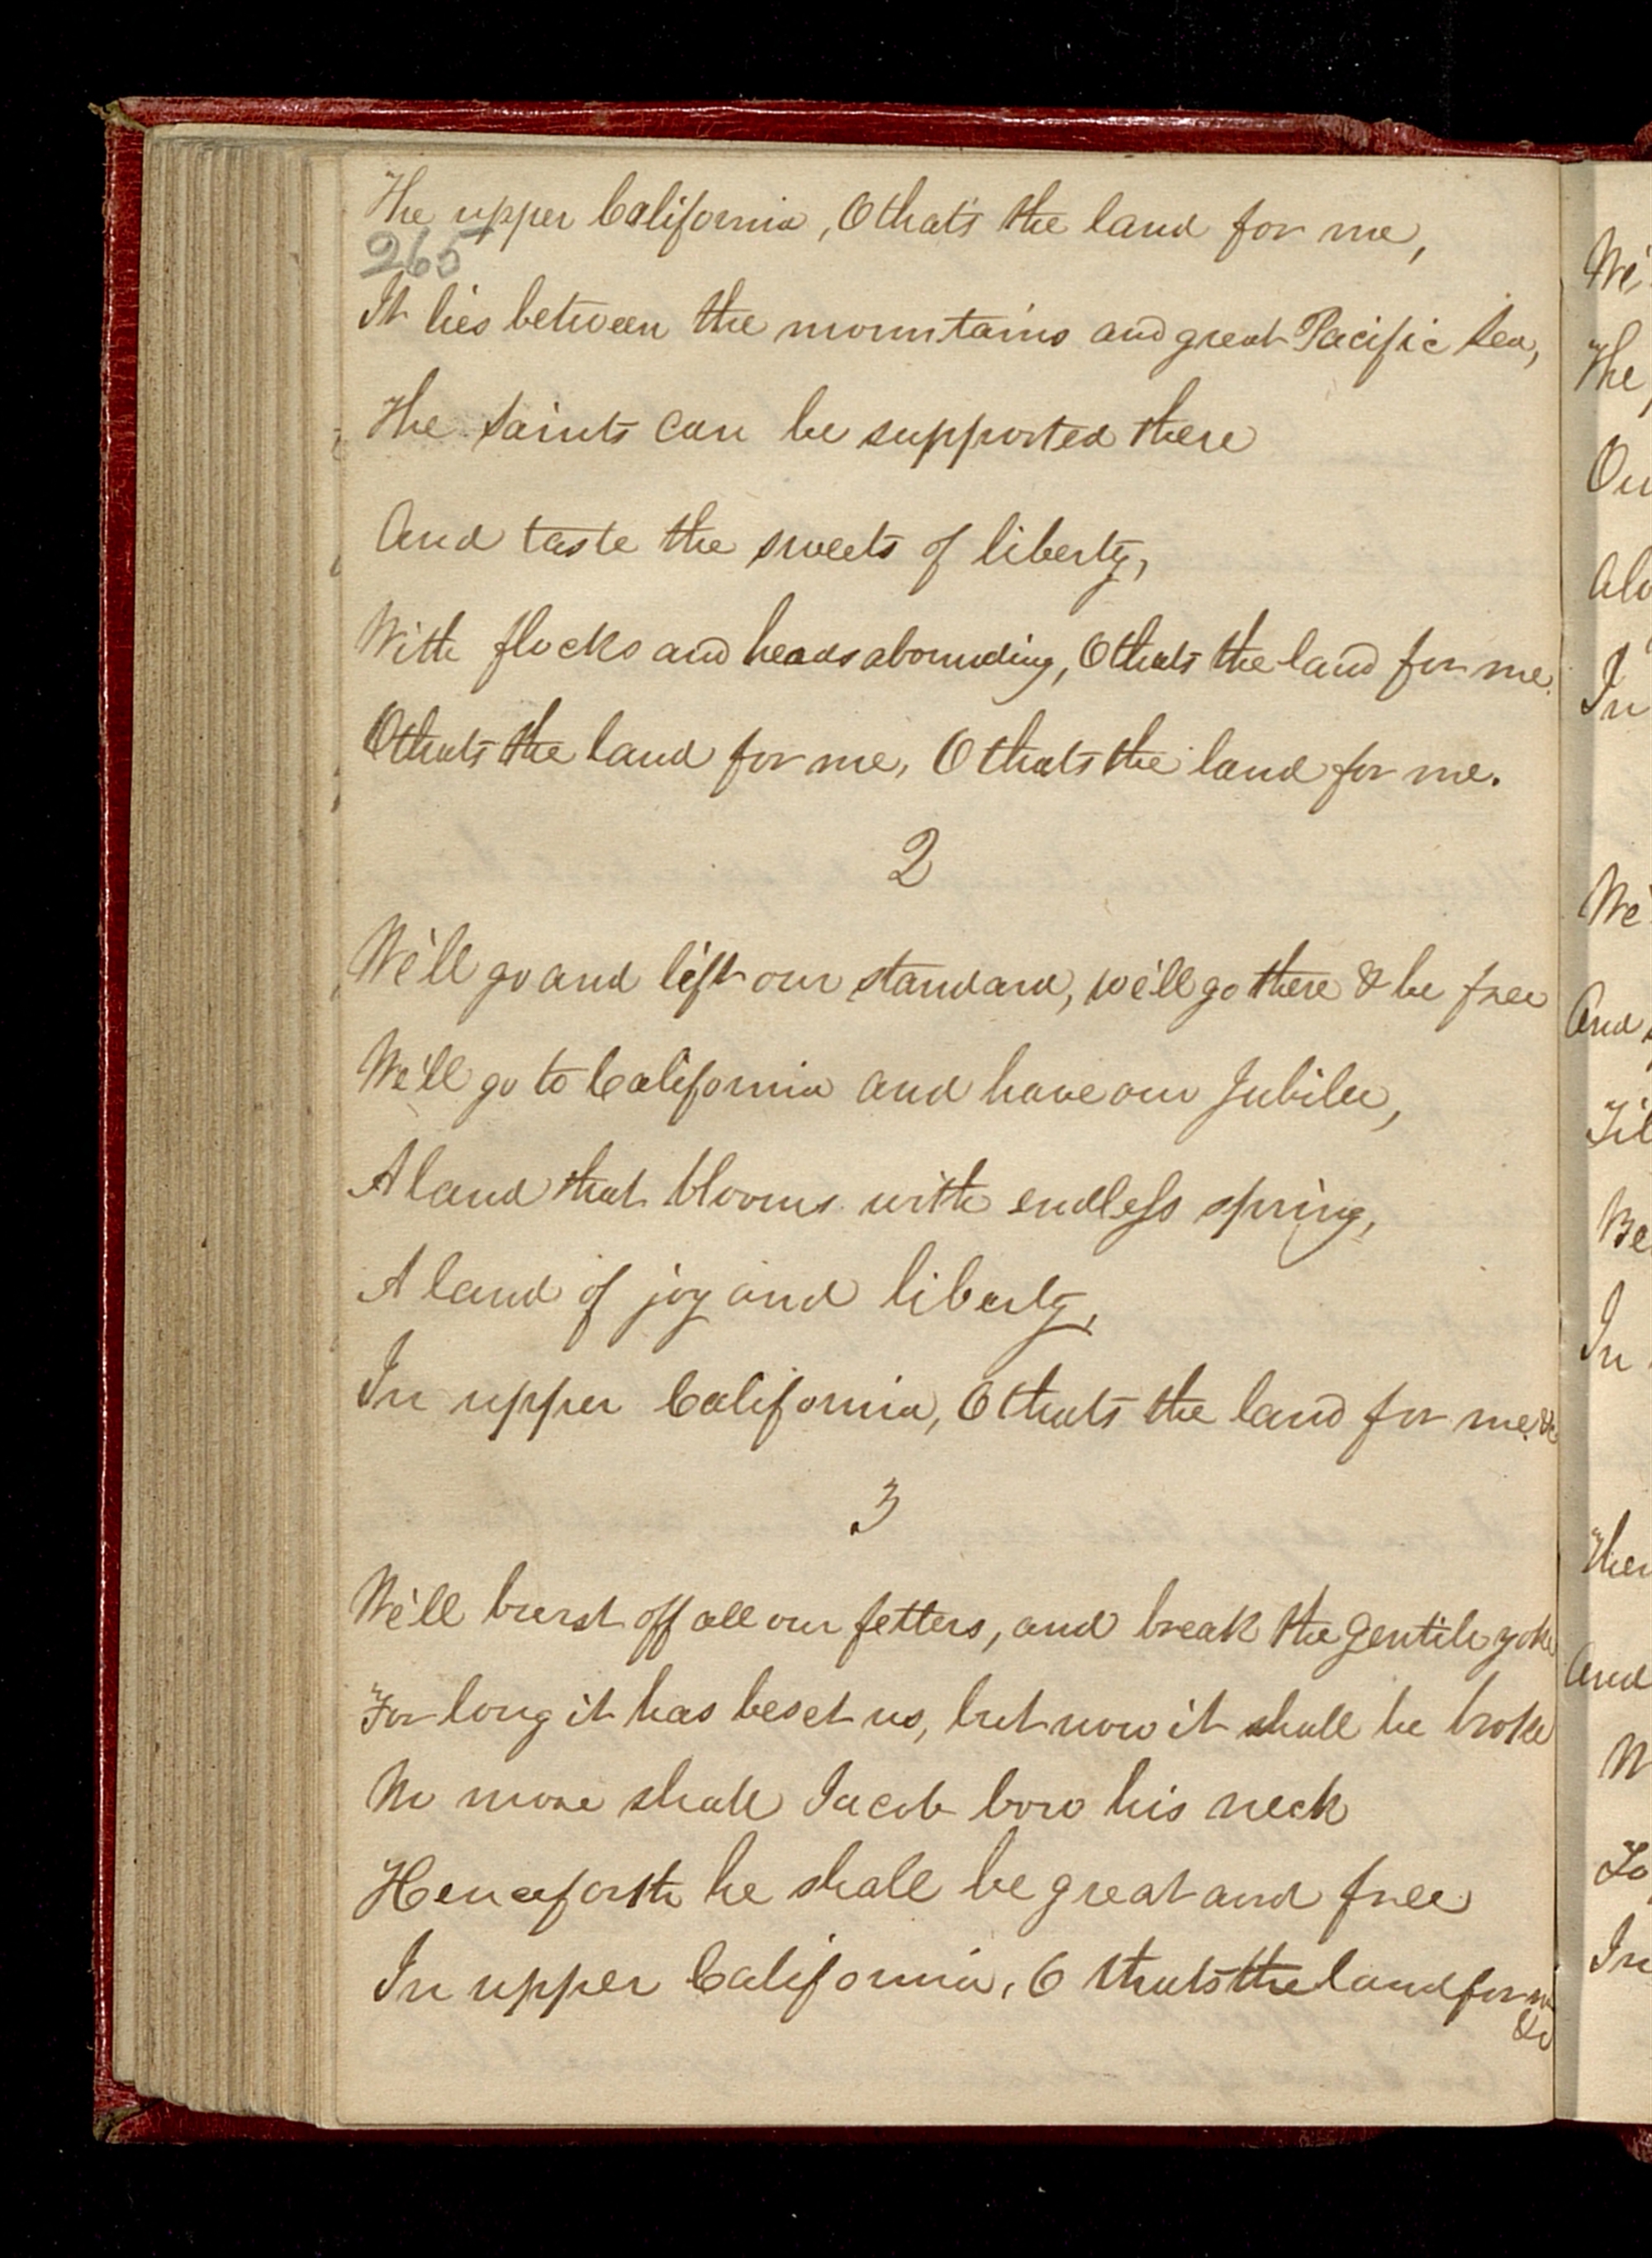 The upper California, O that's the land for me,
265
It lies between the mountains and great Pacific Sea,
The Saints can be supported there
And taste the sweets of liberty,
With flocks and heads abounding, O thats the land for me.
O thats the land for me, O thats the land for me.
2
We'll go and lift our standard, we'll go there & be free
We'll go to California and have our Jubilee,
A land that blooms with endless spring,
A land of joy and liberty,
In upper California, O thats the land for me. &c
3
We'll burst off all our fetters, and break the gentile yoke
For long it has beset us, but now it shall be broke
No more shall Jacob bow his neck
Henceforth he shall be great and free
In upper California, O thats the land for me
&c
We'
The
Ou
Alo
In
We'
And
Til
Be
In
Ther
And
W
To
In